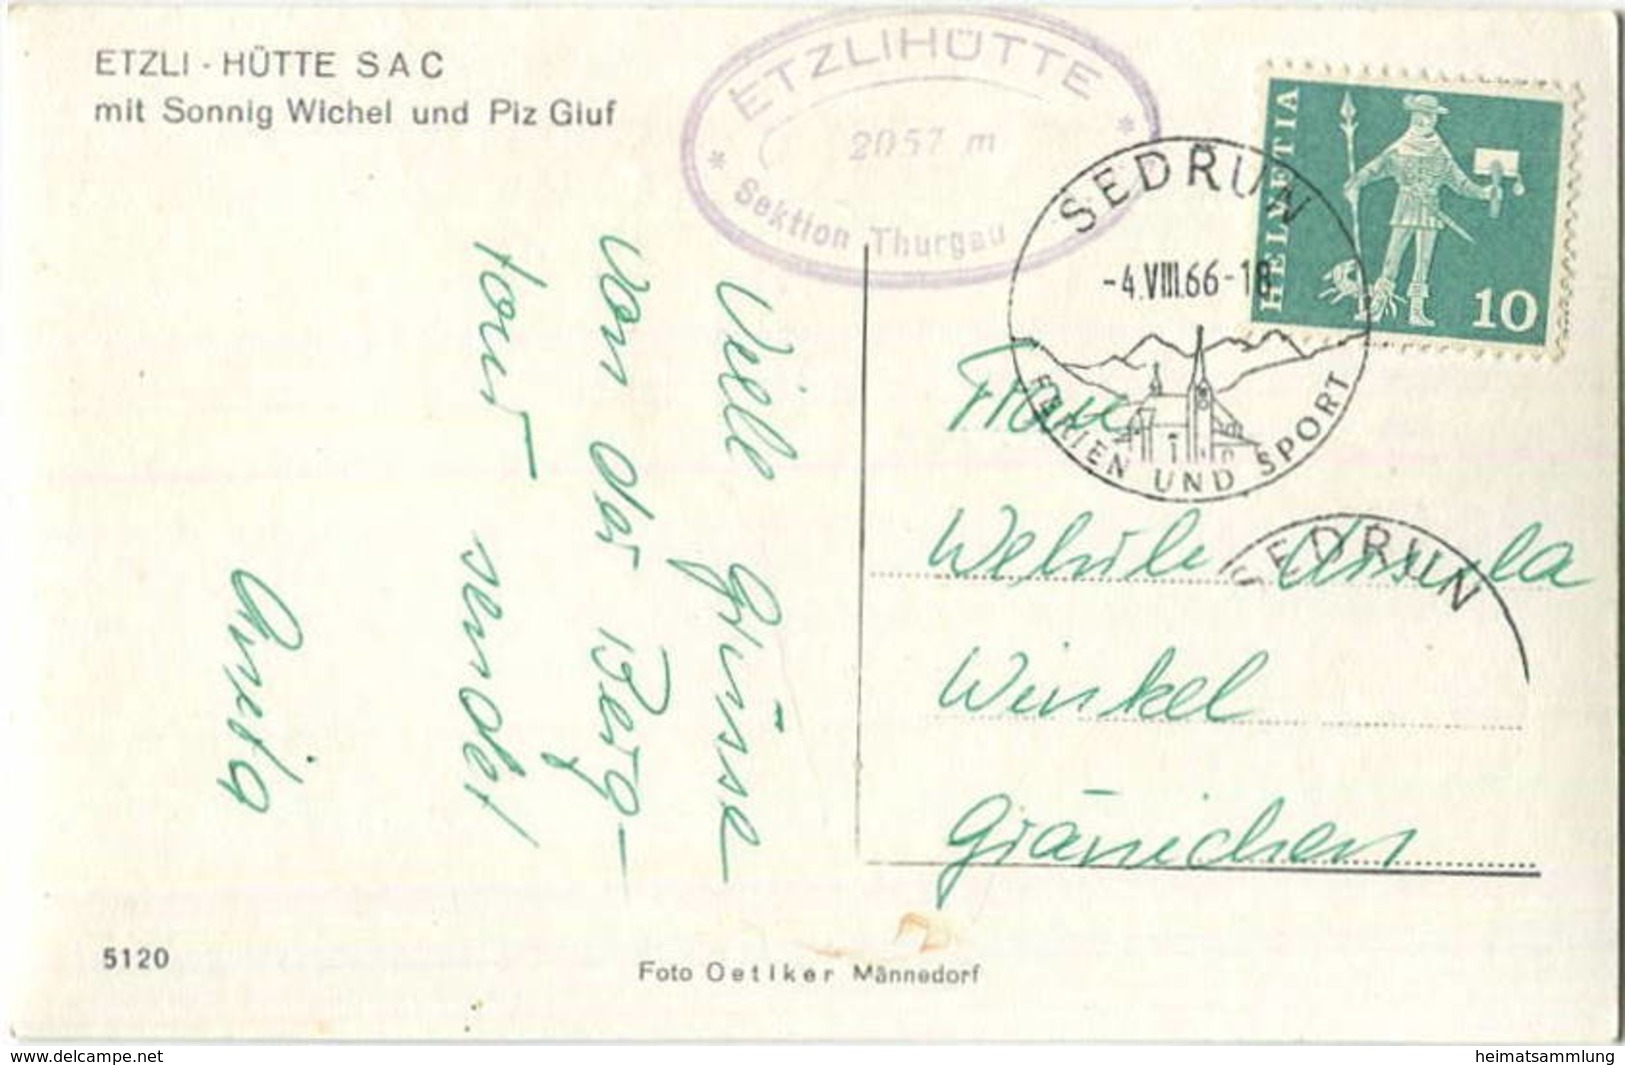 ETZLI - HÜTTE SAC
mit Sonnig Wichel und Piz Giuf
ETZLIHÜTTE
2057 m
* Sektion Thurgau *
SEDRUN
-4.VIII.66-18
FERIEN UND SPORT
HELVETIA
10
SEDRUN
Viele Grüsse
von der Berg-
tour sendet
Anita
Frau
Wehrle Ursula
Winkel
Gränichen
5120
Foto Oetiker Männedorf
www.delcampe.net
heimatsammlung